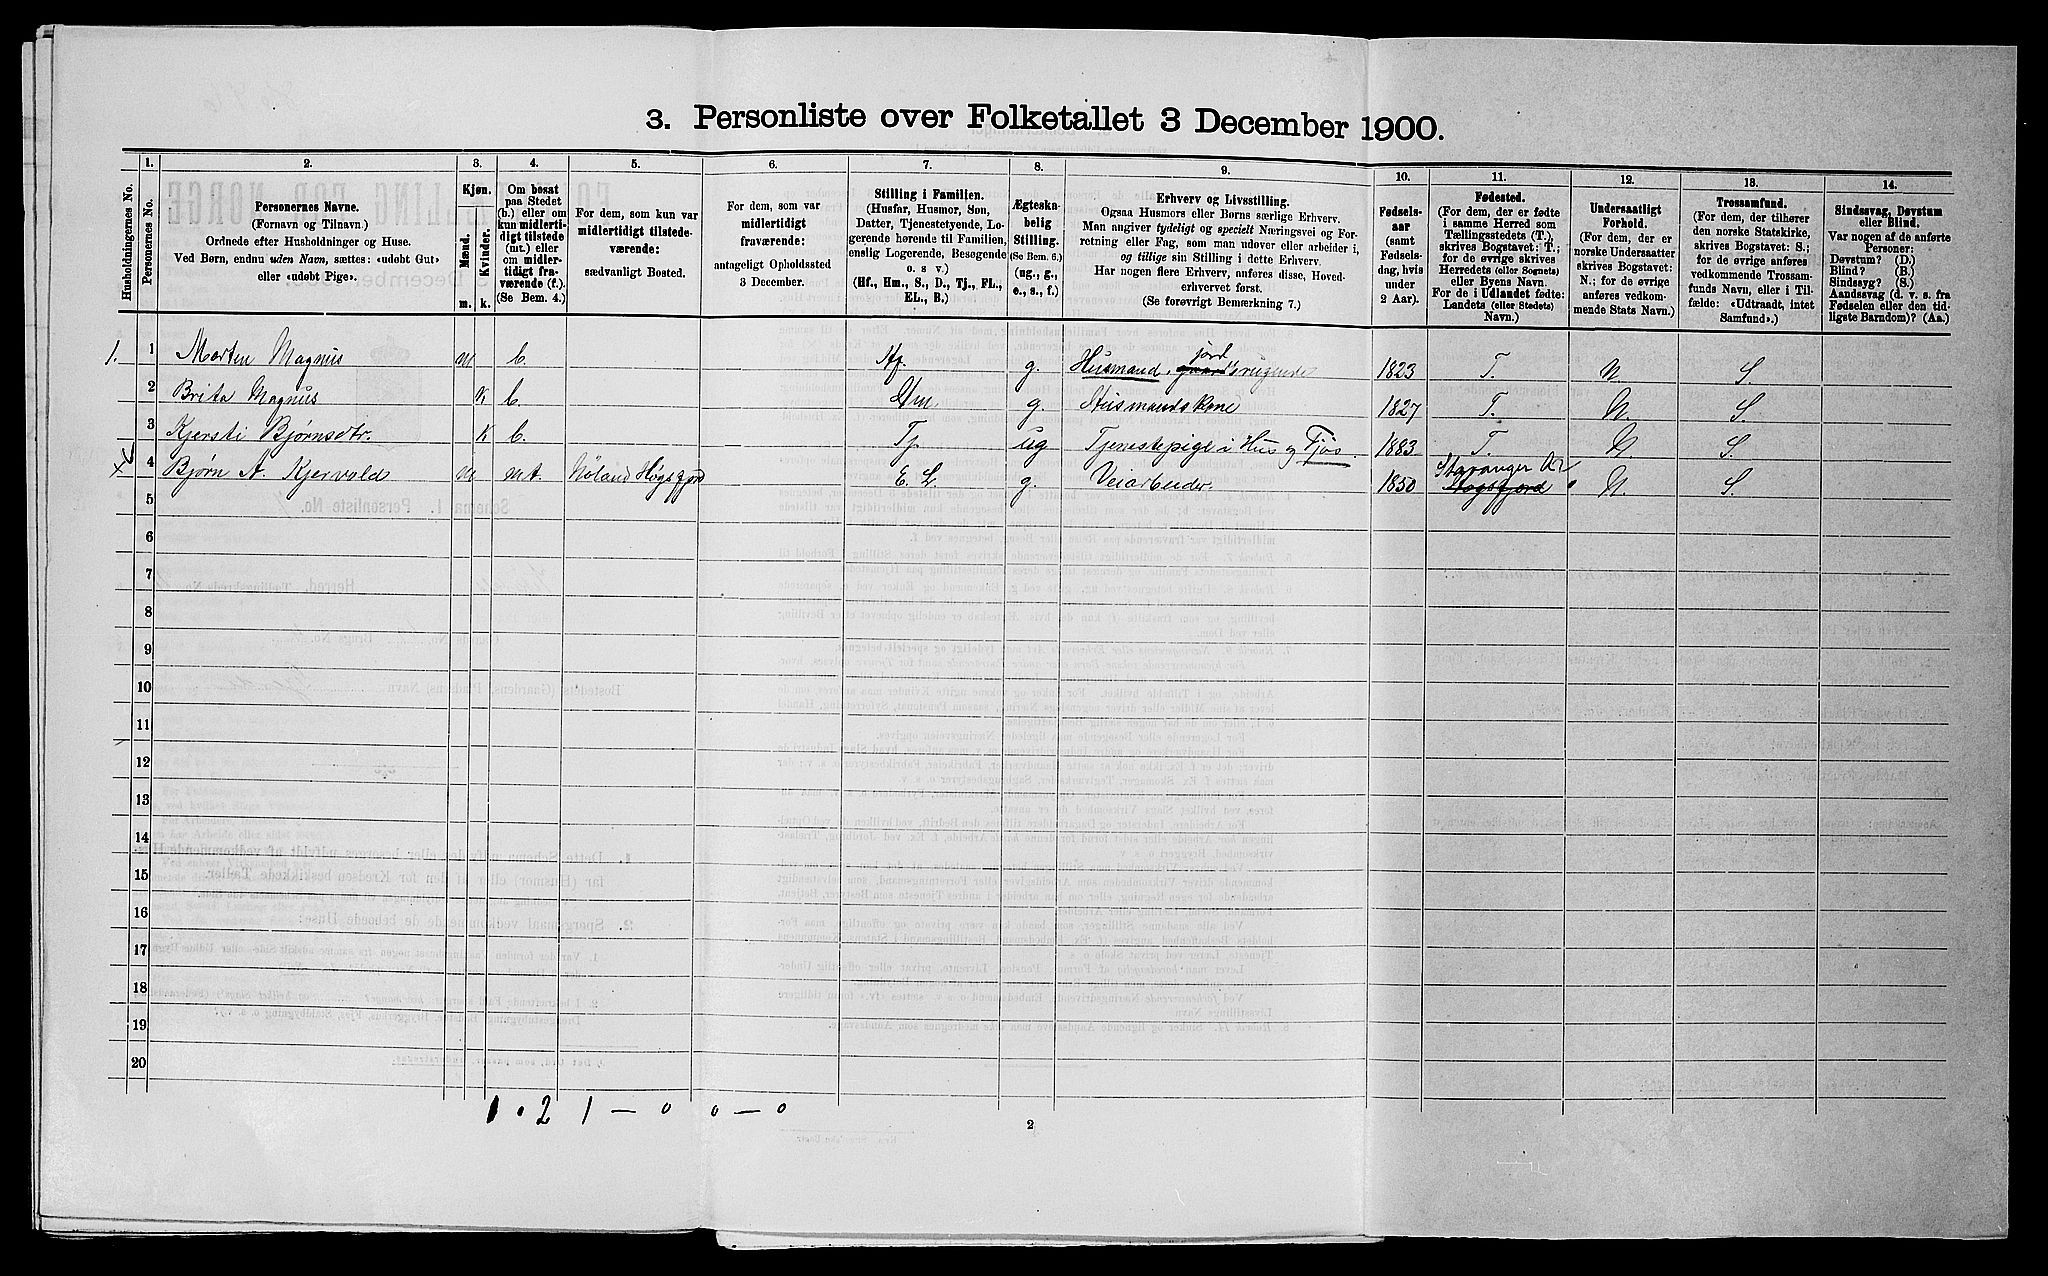 3. Personliste over Folketallet 3 December 1900.
Husholdningernes No.
1.
Personernes No.
2.
Personernes Navne.
(Fornavn og Tilnavn.)
Ordnede efter Husholdninger og Huse.
Ved Børn, endnu uden Navn, sættes: «udøbt Gut»
eller «udøbt Pige».
3.
Kjøn.
Mænd.
Kvinder.
m.
k.
4.
Om bosat
paa Stedet
(b.) eller om
kun midlerti-
digt tilstede
(mt.) eller
om midler-
tidigt fra-
værende (f.).
(Se Bem. 4.)
5.
For dem, som kun var
midlertidigt tilstede-
værende:
sædvanligt Bosted.
6.
For dem, som var
midlertidigt
fraværende:
antageligt Opholdssted
3 December.
7.
Stilling i Familien.
(Husfar, Husmor, Søn,
Datter, Tjenestetyende, Lo-
gerende hørende til Familien,
enslig Logerende, Besøgende
o. s v.)
(Hf., Hm., S., D., Tj., FL.,
EL., B.)
8.
Ægteska-
belig
Stilling.
(Se Bem. 6.)
(ug., g.,
e., s., f.)
9.
Erhverv og Livsstilling.
Ogsaa Husmors eller Børns særlige Erhverv.
Man angiver tydeligt og specielt Næringsvei og For-
retning eller Fag, som man udøver eller arbeider i,
og tillige sin Stilling i dette Erhverv.
Har nogen flere Erhverv, anføres disse, Hoved-
erhvervet først.
(Se forøvrigt Bemærkning 7.)
10.
Fødsels-
aar
(samt
Fødsels-
dag, hvis
under
2 Aar).
11.
Fødested.
(For dem, der er fødte
i samme Herred som
Tællingsstedets (T.),
skrives Bogstavet: T.;
for de øvrige skrives
Herredets (eller Sognets)
eller Byens Navn.
For de i Udlandet fødte:
Landets (eller Stedets)
Navn.)
12.
Undersaatligt
Forhold.
(For dem, der er
norske Undersaatter
skrives Bogstavet:
N.; for de øvrige
anføres vedkom-
mende Stats Navn.)
13.
Trossamfund.
(For dem, der tilhører
den norske Statskirke,
skrives Bogstavet: S.;
for de øvrige anføres
vedkommende Trossam-
funds Navn, eller i Til-
fælde: «Udtraadt, intet
Samfund».)
14.
Sindssvag, Døvstum
eller Blind.
Var nogen af de anførte
Personer:
Døvstum? (D.)
Blind? (B.)
Sindssyg? (S.)
Aandssvag (d. v. s. fra
Fødselen eller den tid-
ligste Barndom)? (Aa.)
1. 1 Morten Magnus m b. Hf. g. Husmand, gaard jordbrugende 1823 T. N. S.
2 Brita Magnus K b. Hm g. Husmandskone 1827 T. N S.
3 Kjersti Bjørnsdtr. K b. Tj. ug Tjenestepige i Hus og Fjøs. 1883 T. N S.
x 4 Bjørn A. Kjervold m mt. Høgsfjord E. L. g. Veiarbeider. 1850 Stavanger Høgsfjord N. S.
5
6
7
8
9
10
11
12
13
14
15
16
17
18
19
20
1 . 2 1 — 0 0 — 0
2